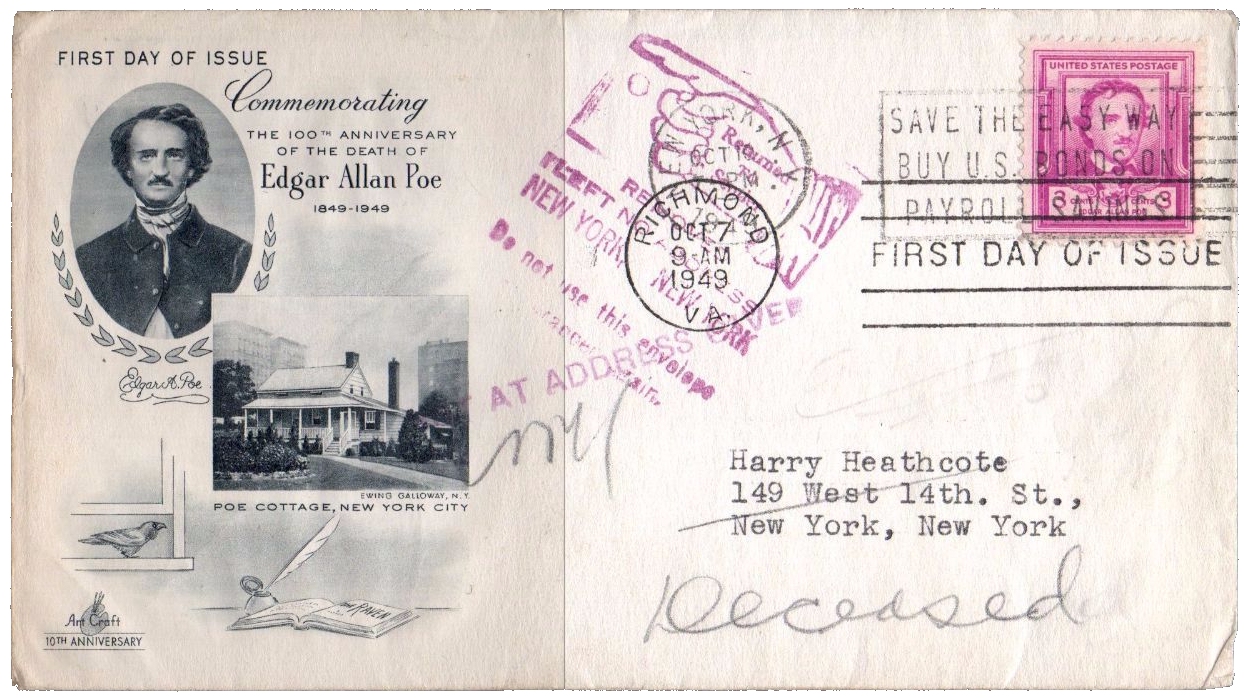 FIRST DAY OF ISSUE
Commemorating
THE 100TH ANNIVERSARY
OF THE DEATH OF
Edgar Allan Poe
1849-1949
Edgar A. Poe
EWING GALLOWAY, N.Y.
POE COTTAGE, NEW YORK CITY
THE RAVEN
Art Craft
10TH ANNIVERSARY
NEW YORK, N.Y.
OCT
PM
RICHMOND
OCT 7
9-AM
1949
VA.
Returned
LEFT
NEW YORK,
NEW YORK
Do not use this envelope
AT ADDRESS
UNITED STATES POSTAGE
SAVE THE EASY WAY
BUY U.S. BONDS ON
PAYROLL SAVINGS
3 CENTS 3
EDGAR ALLAN POE
FIRST DAY OF ISSUE
Harry Heathcote
149 West 14th. St.,
New York, New York
Deceased